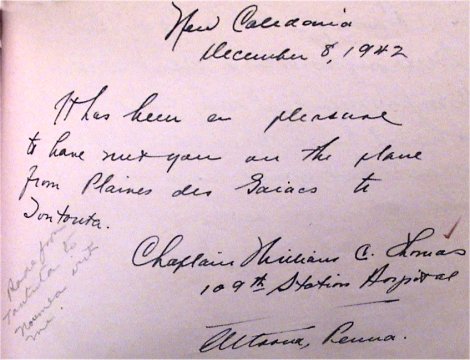 New Caledonia
December 8, 1942
It has been a pleasure
to have met you on the plane
from Plaines des Gaiacs to
Tontouta.
Chaplain William C. Thomas
109th Station Hospital
Altoona, Penna.
Rode from
Tontuta to
Noumea with
me.